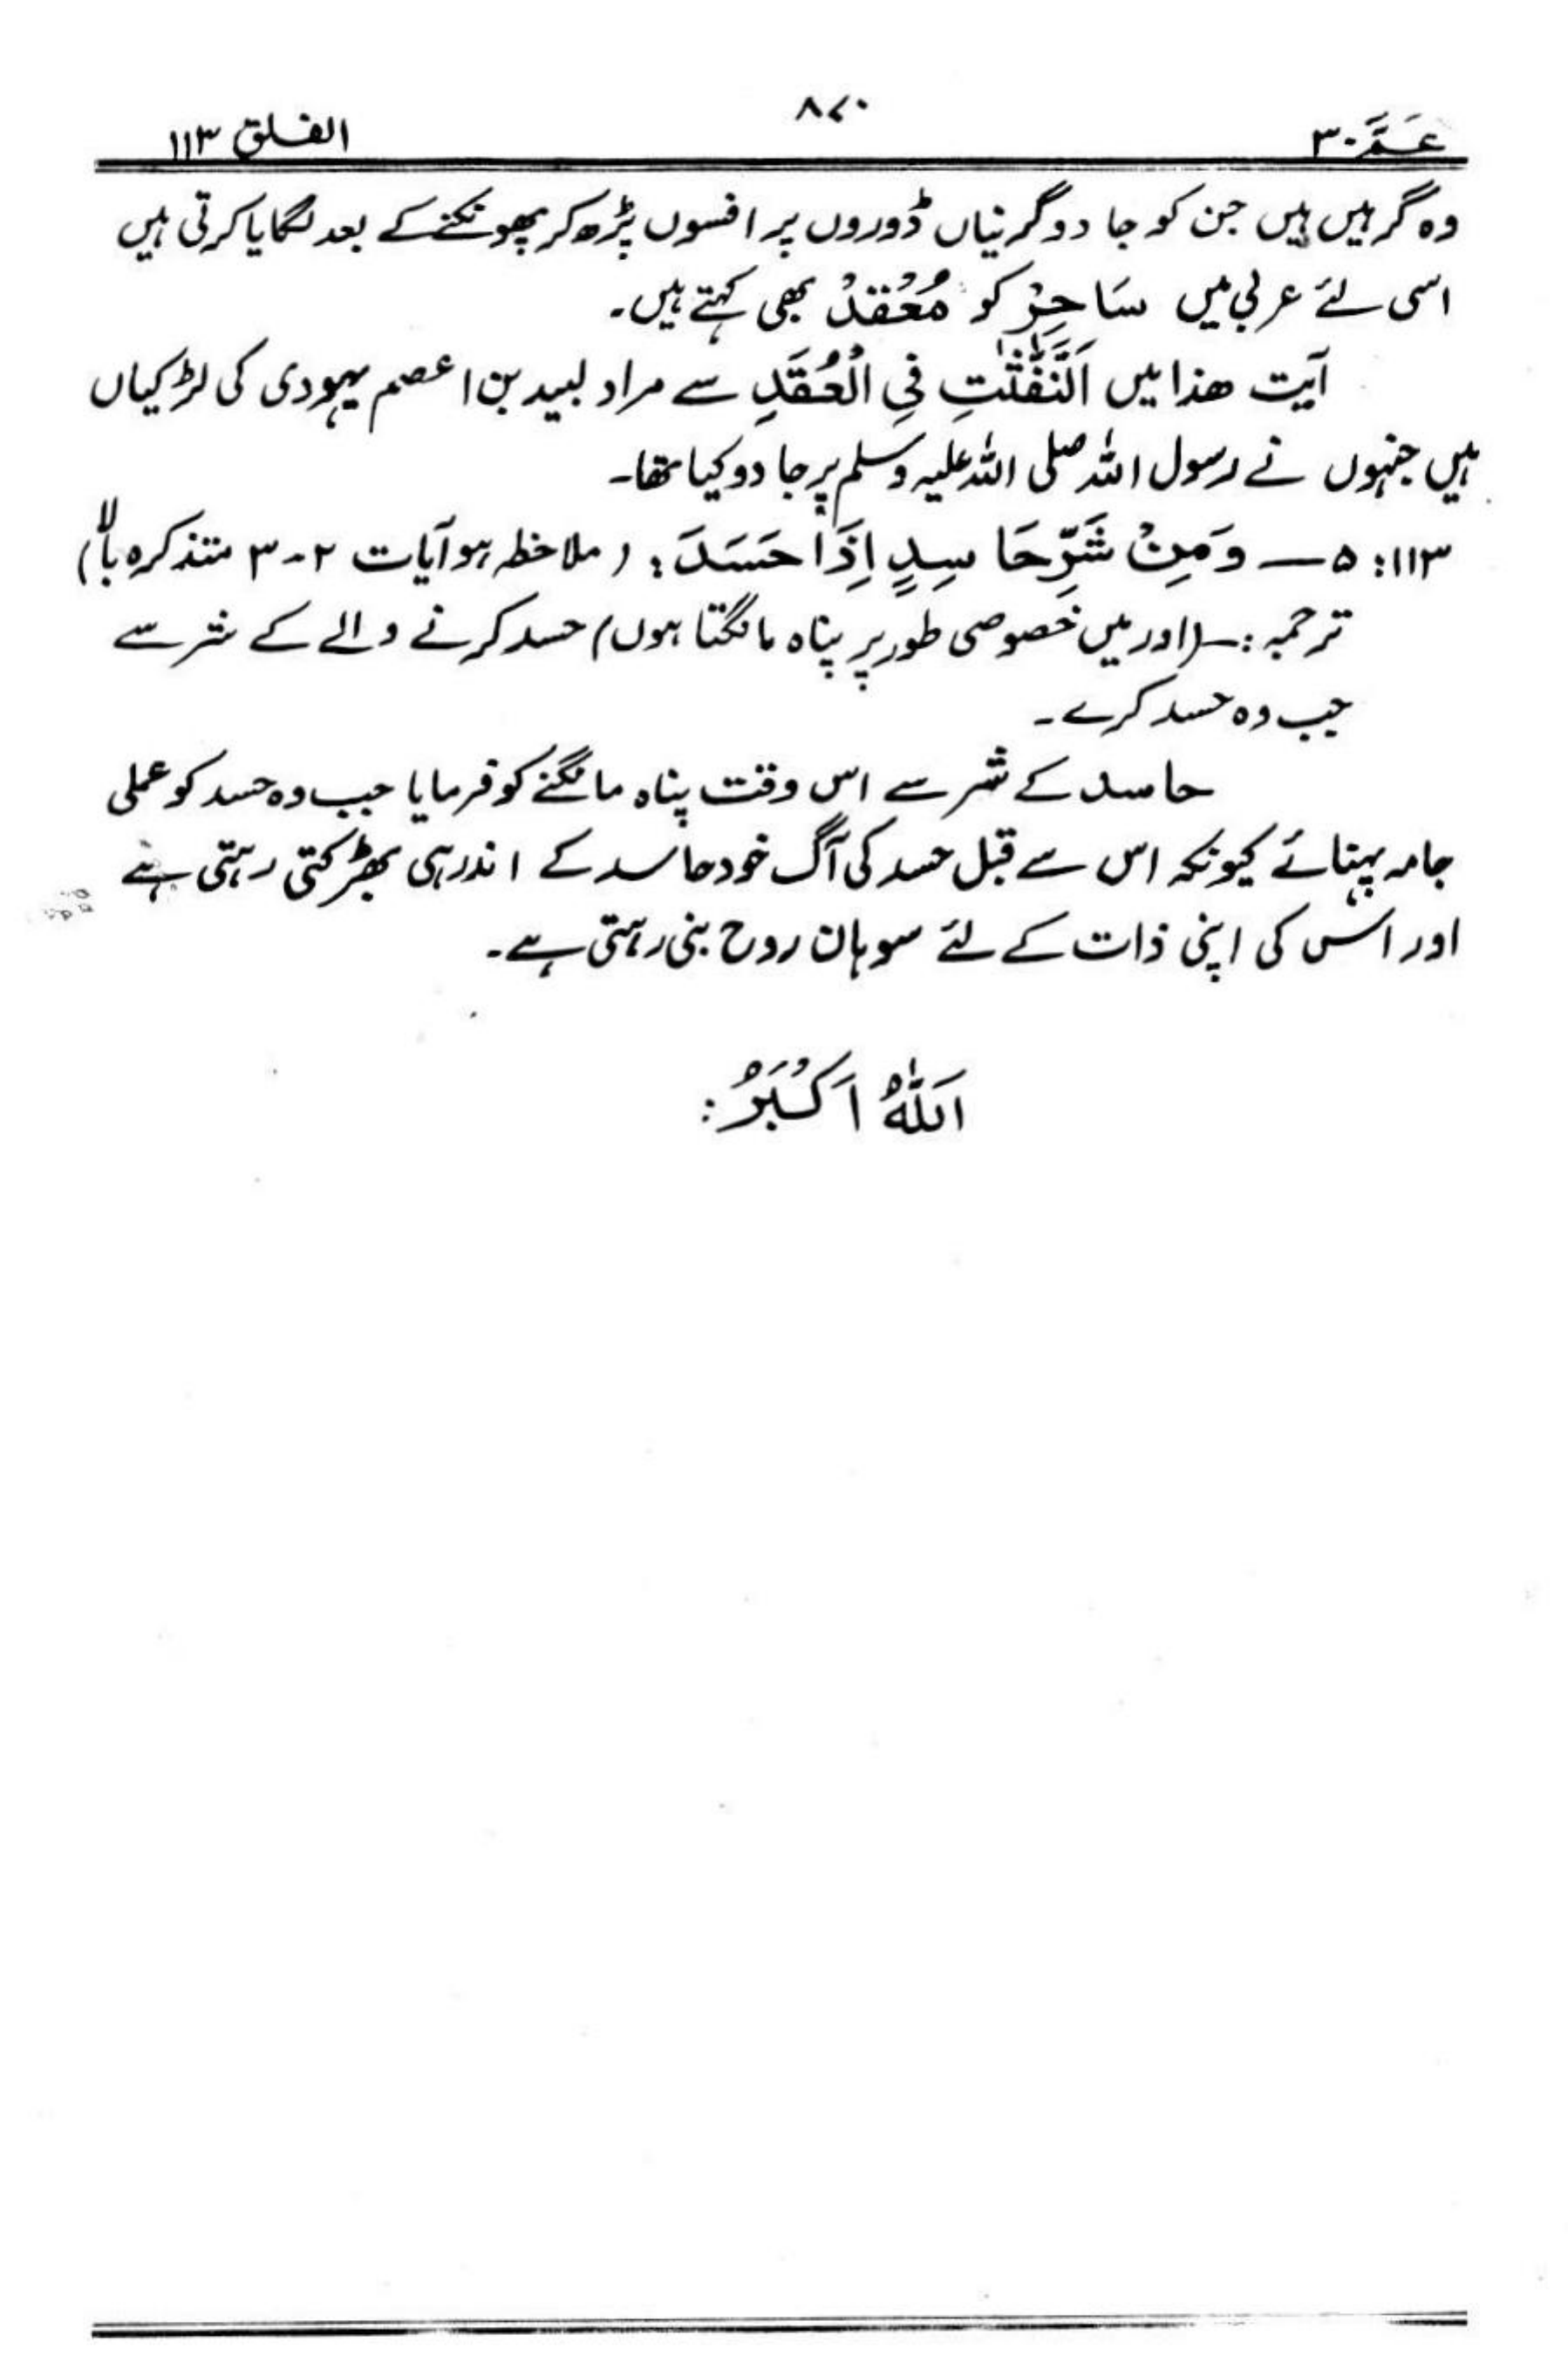 عَمَّ ۳۰
۸۷۰
الفلق ۱۱۳
وہ گرہیں ہیں جن کو جادوگرنیاں ڈوروں پر افسوں پڑھ کر پھونکنے کے بعد لگایا کرتی ہیں
اسی لئے عربی میں سَاحِرٌ کو مُعْقِدٌ بھی کہتے ہیں۔
آیت ھذا میں اَلنَّفّٰثٰتِ فِی الْعُقَدِ سے مراد لبید بن اعصم یہودی کی لڑکیاں
ہیں جنہوں نے رسول اللہ صلی اللہ علیہ وسلم پر جادو کیا تھا۔
۱۱۳: ۵ — وَمِنْ شَرِّ حَاسِدٍ اِذَا حَسَدَ: (ملاحظہ ہو آیات ۲-۳ متذکرہ بالا)
ترجمہ:۔ (اور میں خصوصی طور پر پناہ مانگتا ہوں) حسد کرنے والے کے شر سے
جب وہ حسد کرے۔
حاسد کے شر سے اس وقت پناہ مانگنے کو فرمایا جب وہ حسد کو عملی
جامہ پہنائے کیونکہ اس سے قبل حسد کی آگ خود حاسد کے اندر ہی بھڑکتی رہتی ہے
اور اس کی اپنی ذات کے لئے سوہان روح بنی رہتی ہے۔
اَللّٰهُ اَكْبَرُ: